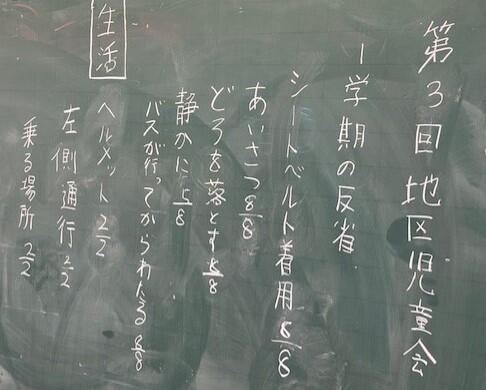 第3回地区児童会
1学期の反省
シートベルト着用8/8
あいさつ8/8
どろを落とす8/8
静かに5/8
バスが行ってからわたる8/8
生活
ヘルメット2/2
左側通行2/2
乗る場所2/2